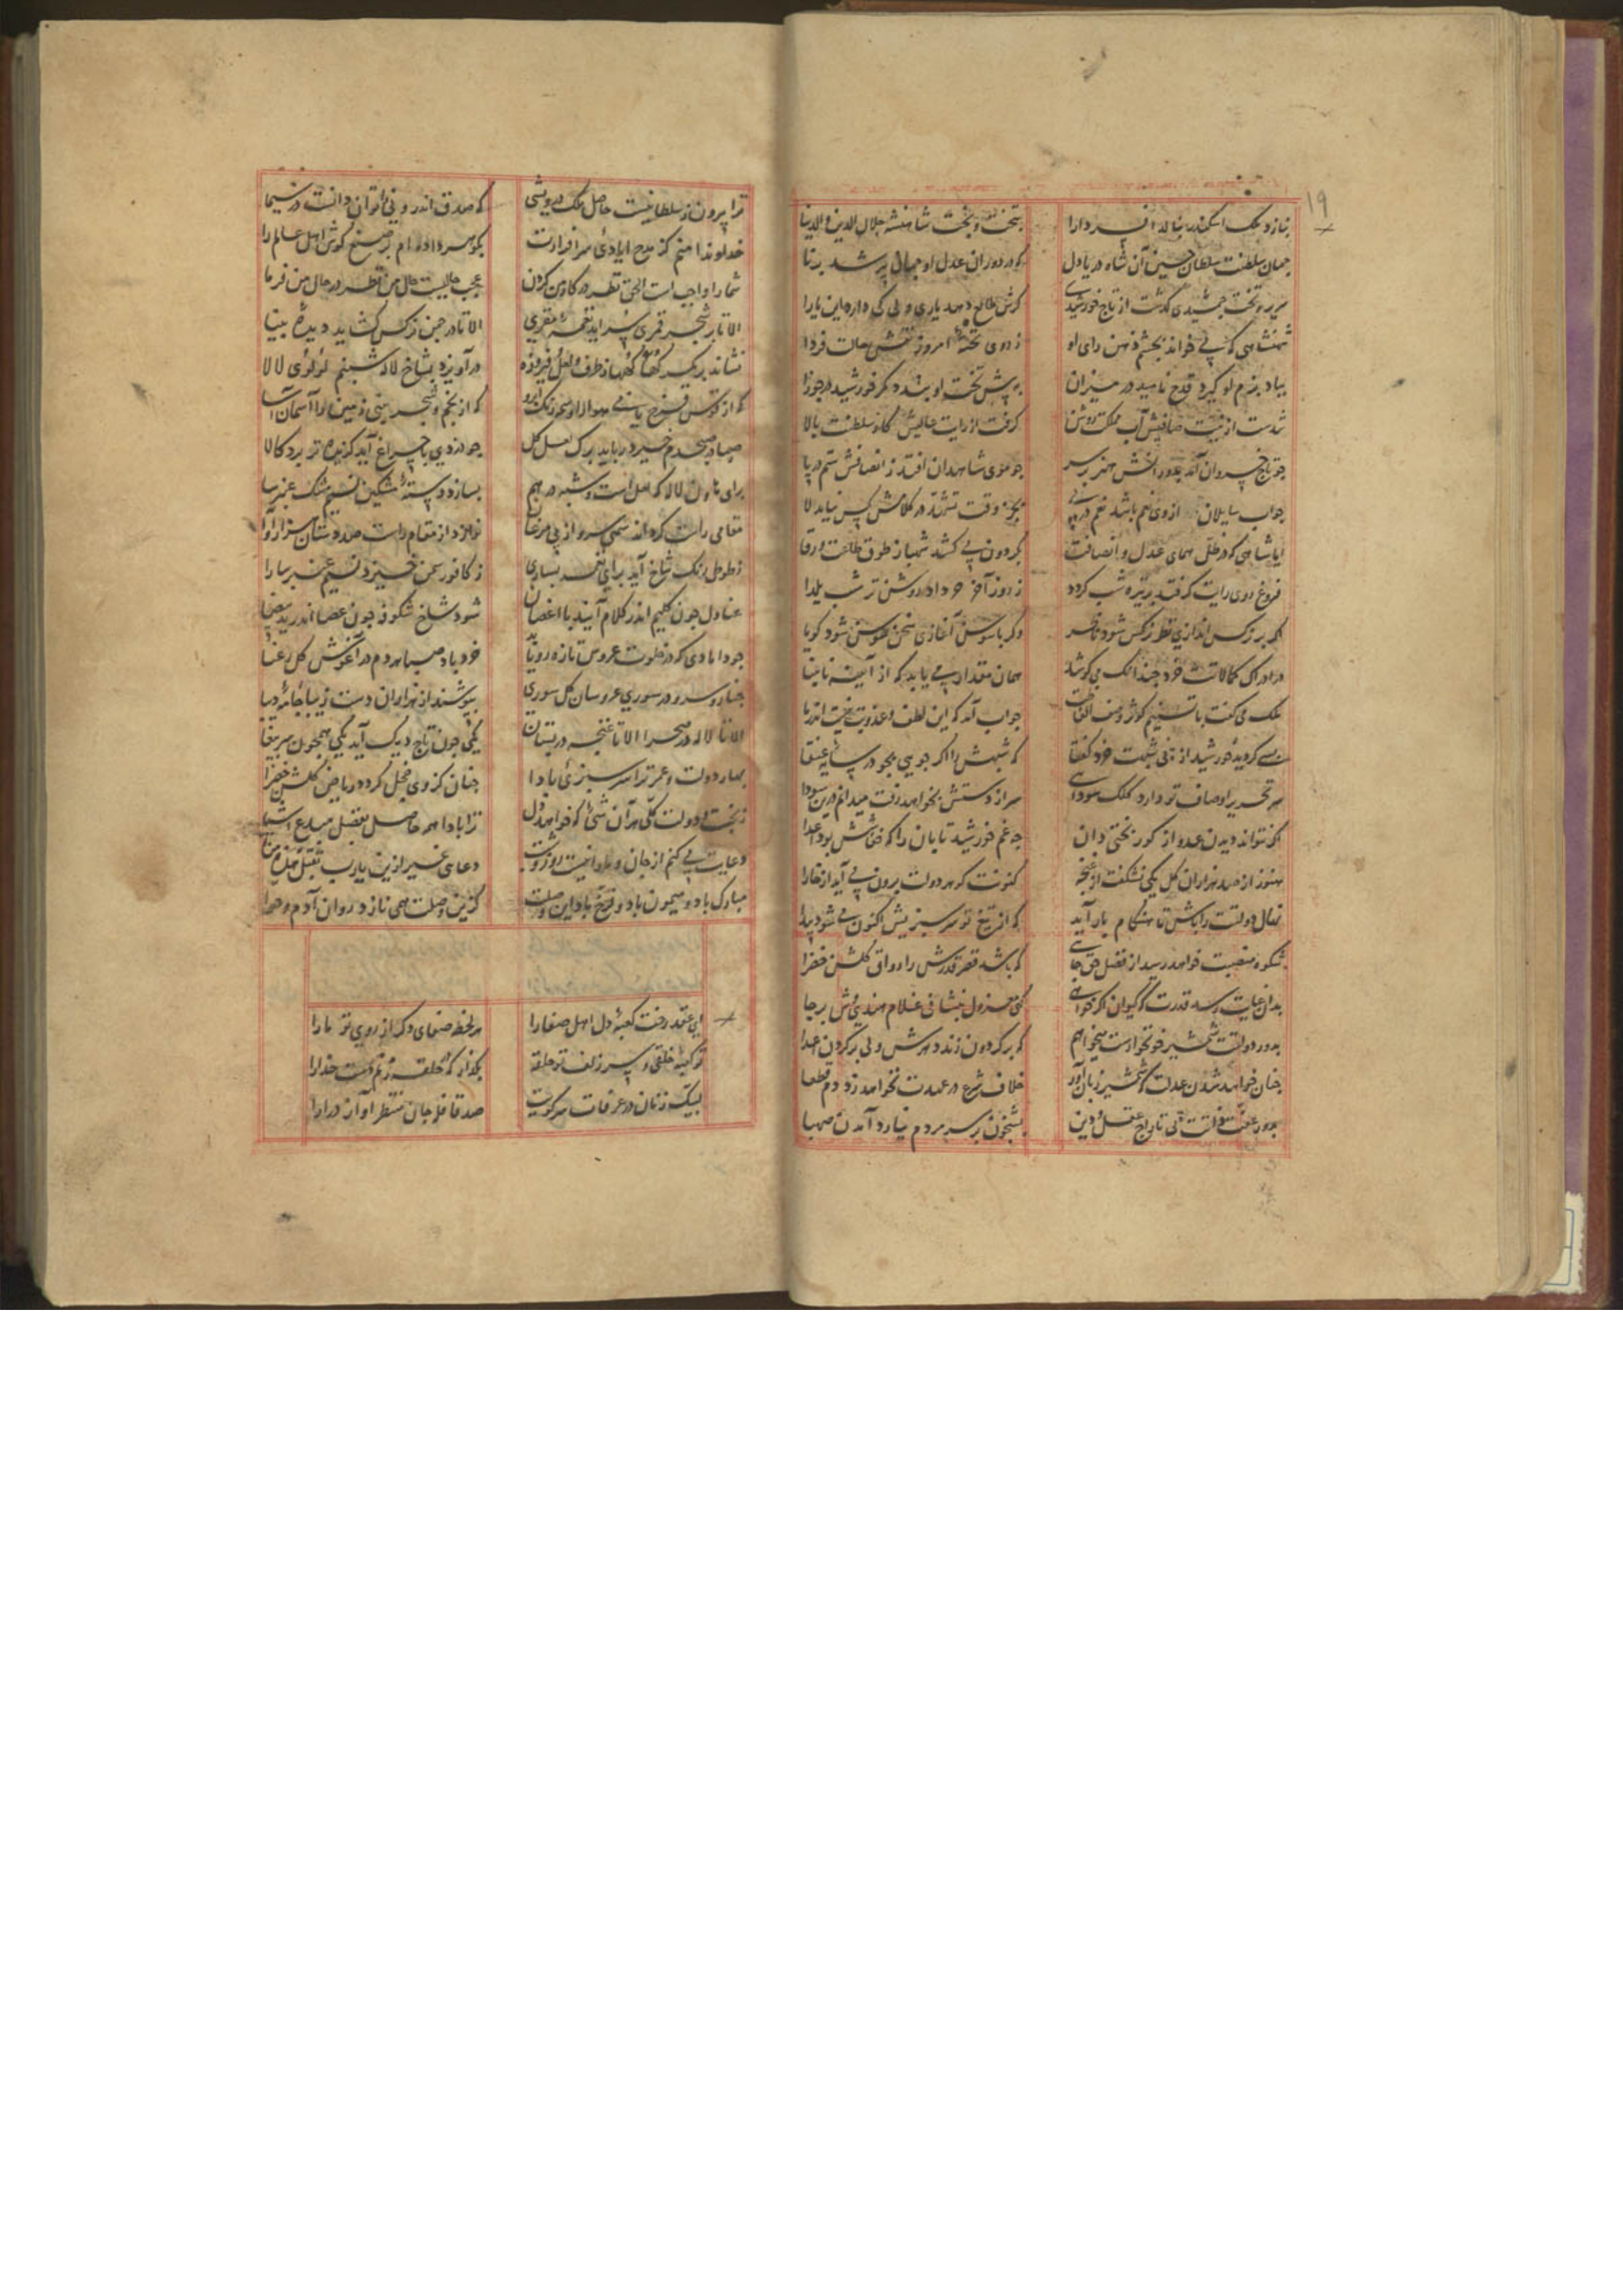 ۱۹
بنازد ملک اسکندر بنالد افسر دارا
بتخت و بخت شاهنشه جلال الدین و الدنیا
جهان سلطنت سلطان حسین آن شاه دریادل
که در دوران عدل او جهان پیر شد برنا
سریر و تخت جمشیدی گذشت از تاج خورشیدی
کرش طالع دهد یاری ولی کی دارد این یارا
شهنشاهی که می خواند بچشم ذهن رای او
ز روی تختهٔ امروز نقش حالت فردا
بیاد بزم او گیرد قدح ناهید در میزان
به پیش تخت او بندد کمر خورشید در جوزا
شدست از نیت صافیش آب مملکت روشن
گرفت از رایت عالیش کار سلطنت بالا
چو تاج خسروان آمد بدورانش هنر بر سر
چو موی شاهدان افتد ز انصافش ستم در پا
جواب سایلان از وی نعم باشد نعم در پی
بجز وقت تشهد در کلامش کس نیابد لا
ایا شاهی که در ظل همای عدل و انصافت
بگردون می کشد شهباز طوق طاعت ورقا
فروغ روی رایت گر فتد بر تیره شب گردد
ز روز آخر خرداد روشن تر شب یلدا
اگر بر نرگس اندازی نظر نرگس شود ناظر
وگر با سوسن آغازی سخن سوسن شود گویا
در ادراک کمالاتت خرد چندانک می کوشد
همان مقدار می یابد که از آیینه نابینا
ملک می گفت با تسنیم کوثر وصف الفاظت
جواب آمد که این لطف و عذوبت نیست اندر ما
بسی گردید خورشید از پی شبهت خرد گفتا
که شبهش را اگر جویی بجو در سایه عنقا
سر تحریر اوصاف تو دارد کلک سودایی
سر از دستش بخواهد رفت میدانم درین سودا
اگر نتواند دیدن عدو از کور بختی دان
چه غم خورشید تابان را که خفاشش بود اعدا
هنوز از صد هزاران گل یکی نشکفت از غنچه
کنونت گوهر دولت برون می آید از خارا
نهال دولتت را باش تا هنگام بار آید
که از تیغ تو سرسبزیش اکنون می شود پیدا
شکوه منصبت خواهد رسید از فضل حق جایی
که باشد قصر قدرش را رواق گلشن خضرا
بدان غایت رسد قدرت که کیوان اگر خواهی
کنی معزول بنشانی غلام هندویش بر جا
بدور دولتت شمشیر خونخوارست میخواهم
که برگردون زند دهرش ولی بر گردن اعدا
چنان خواهد شدن عدلت که شمشیر زبان آور
خلاف شرع در عهدت نخواهد زد دم قطعا
بدور عفتت وقتست کی تاراج عقل و دین
بشبخون بر سر مردم نیارد آمدن صهبا
ترا بیرون ز سلطانیست حاصل ملک درویشی
که صدق اندرونی را توان دانست در سیما
خداوندا منم کز مدح ایادی سرافرازت
بگوهر داده ام ترصیع گوش اهل عالم را
شما را واجبست الحق نظر در کار من کردن
عجب حالیست حال من نظر در حال من فرما
الا تا بر شجر قمری سراید نغمهٔ مقری
الا تا در چمن نرگس گشاید دیدهٔ بینا
درآویزد بشاخ لاله شبنم لولوی لالا
صبا در صبحدم خیزد رباید برگ لعل گل
مقامی راست کرد اند سهی سرو از پی مرغان
نوا سازد از مقام راست صد دستان هزارآوا
ز کافور سمن خیزد نسیم عنبر سارا
عنادل چون کلیم اندر کلام آیند با اغصان
شود شاخ شکوفه چون عصا اندر ید بیضا
خرد باد صبا هر دم در آغوش گل رعنا
چنار و سرو در سوری عروسان گل سوری
بپوشند از هزاران دست زیبا جامهٔ دیبا
الا تا لاله در صحرا الا تا غنچه در بستان
یکی چون تاج دیک آید یکی همچون سر ببغا
بهار دولت و عمر ترا سرسبزئی بادا
چنان کز وی خجل گردد ریاض گلشن خضرا
ز بخت و دولت کلی هر آن شیء که خواهد دل
ترا بادا همه حاصل بفضل مبدع اشیا
دعایت می کنم از جان و میدانیست روز و شب
دعای غیر ازین یارب تقبل هذه منا
مبارک باد و میمون باد و فرخ باد این وصلت
کزین وصلت همی نازد روان آدم و حوا
ای عقد رخت کعبهٔ دل اهل صفا را
هر لحظه صفای دگر از روی تو ما را
تو کعبهٔ خلقی و سر زلف تو حلقه
مگذار که حلقه زنم دست خدا را
لبیک زنان در عرفات سر کویت
صد قافله جان منتظر آواز درا را